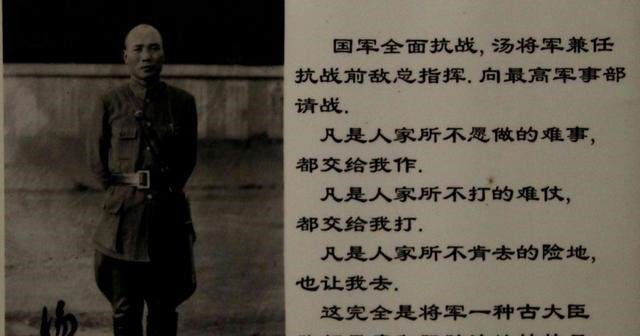 国军全面抗战,汤将军兼任
抗战前敌总指挥.向最高军事部
请战.
凡是人家所不愿做的难事,
都交给我作.
凡是人家所不打的难仗,
都交给我打.
凡是人家所不肯去的险地,
也让我去.
这完全是将军一种古大臣